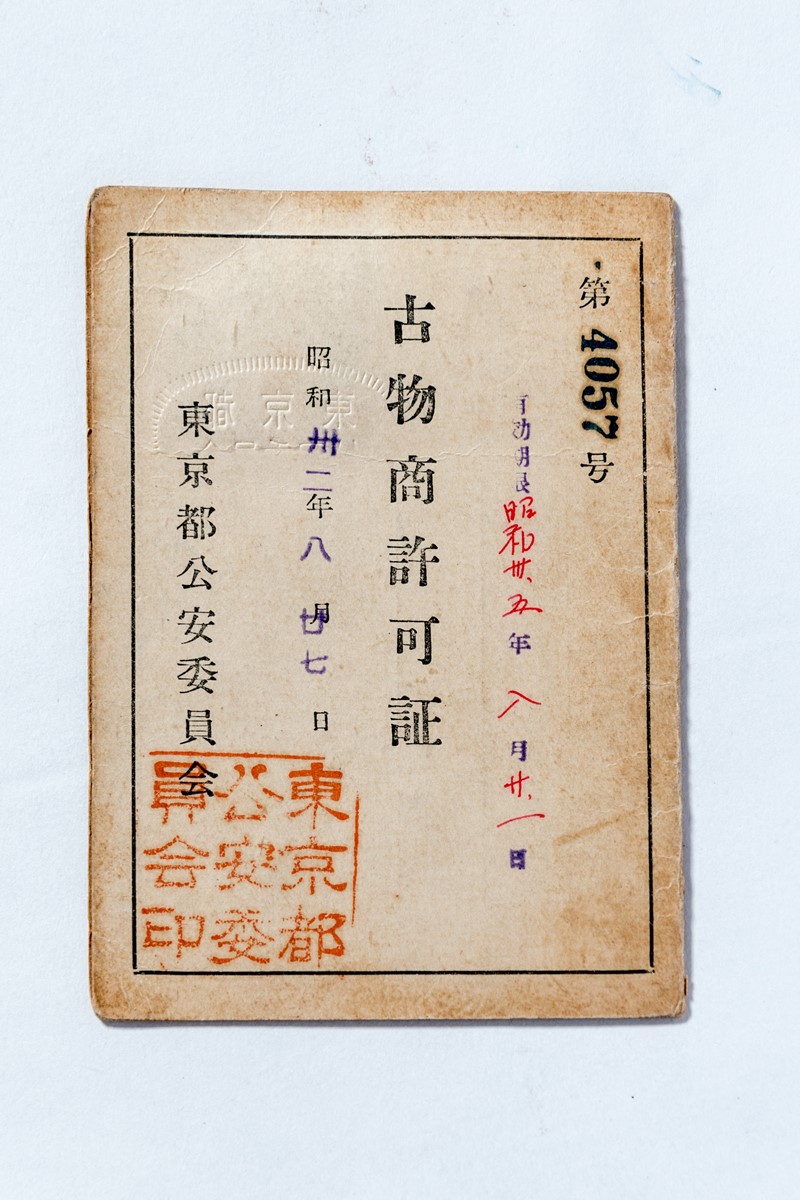 第4057号
有効期限昭和廿五年八月廿一日
古物商許可証
昭和卅二年八月廿七日
東京都公安委員会
東京都
公安委
員会印
東京